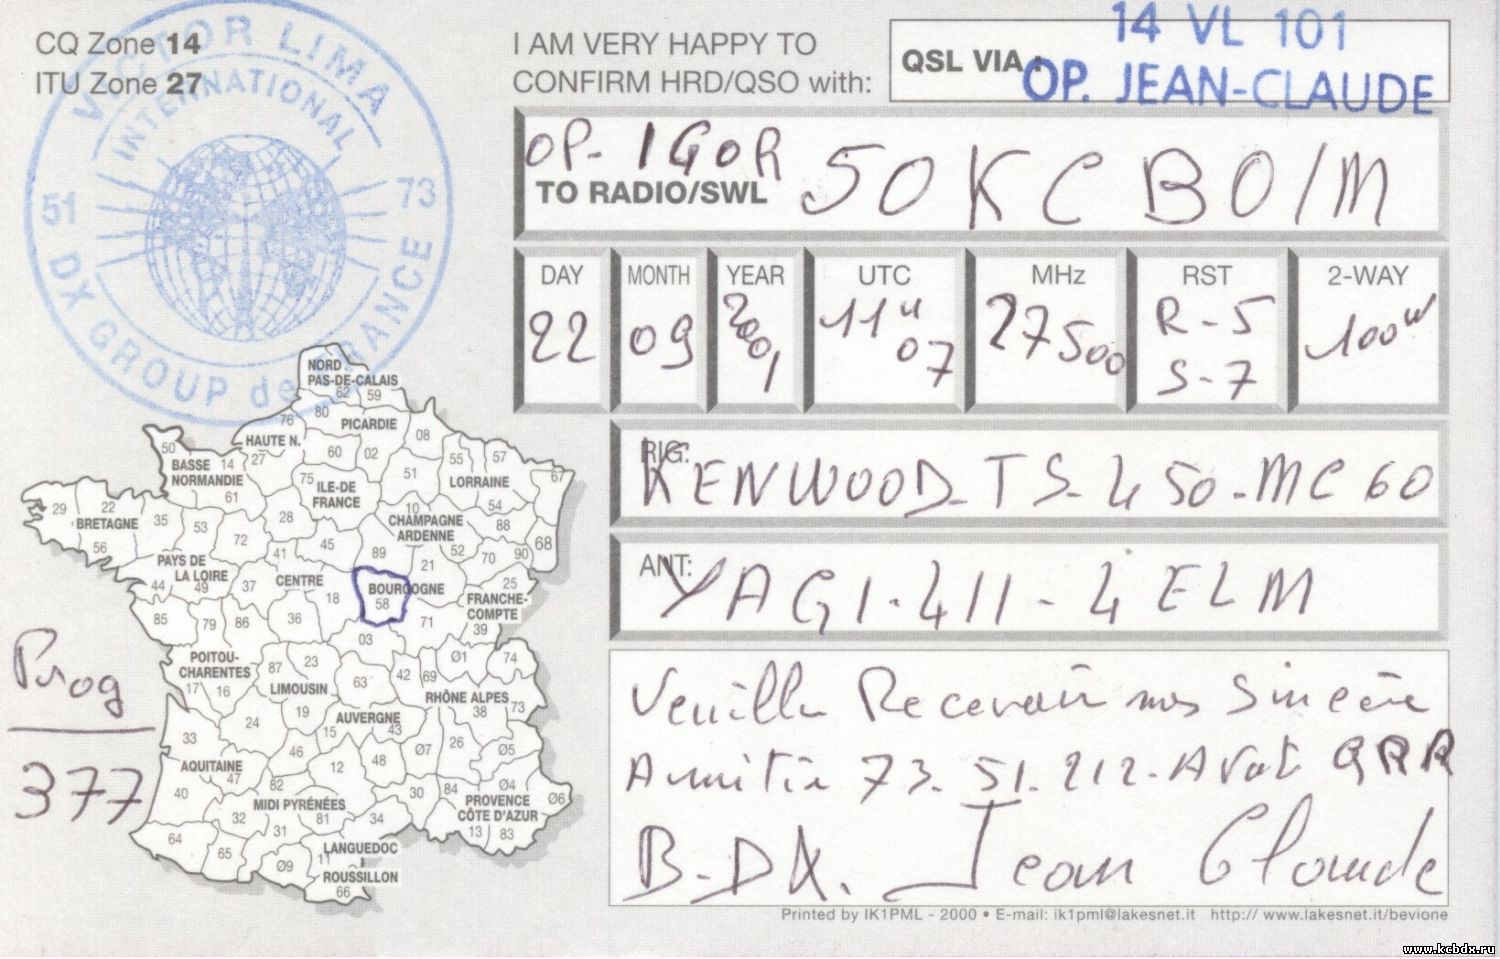 CQ Zone 14
ITU Zone 27
VICTOR LIMA
INTERNATIONAL
51
73
DX GROUP de FRANCE
I AM VERY HAPPY TO
CONFIRM HRD/QSO with:
QSL VIA:
14 VL 101
OP. JEAN-CLAUDE
OP- IGOR
TO RADIO/SWL
50KCB0/M
DAY
MONTH
YEAR
UTC
MHz
RST
2-WAY
22
09
2001
11H 07
27500
R-5
S-7
100W
RIG:
KENWOOD-TS-450-MC60
ANT:
YAGI-411-4ELM
Veuille Recevoir nos Sincère
Amitié 73.51.212. Avot QRR
B.DX. Jean Claude
Prog
377
NORD
PAS-DE-CALAIS
62
59
80
PICARDIE
76
HAUTE N.
27
60
02
08
50
BASSE
NORMANDIE
14
61
75
ILE-DE
FRANCE
51
55
57
67
LORRAINE
54
88
68
10
CHAMPAGNE
ARDENNE
52
29
22
BRETAGNE
35
56
53
72
28
45
41
89
21
70
90
25
PAYS DE
LA LOIRE
44
49
37
CENTRE
18
36
BOURGOGNE
58
71
FRANCHE-
COMPTE
39
85
79
86
03
POITOU-
CHARENTES
17
16
87
23
LIMOUSIN
19
63
42
69
Ø1
74
RHÔNE ALPES
38
73
24
15
AUVERGNE
43
33
AQUITAINE
47
40
46
82
12
48
Ø7
26
Ø5
30
84
Ø4
Ø6
PROVENCE
CÔTE D'AZUR
13
83
MIDI PYRÉNÉES
32
81
31
34
64
65
Ø9
11
LANGUEDOC
ROUSSILLON
66
Printed by IK1PML - 2000 • E-mail: ik1pml@lakesnet.it http:// www.lakesnet.it/bevione
www.kcbdx.ru